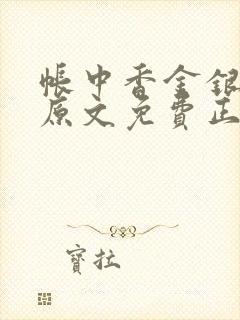 帳中香金銀
原文免費正
寶拉